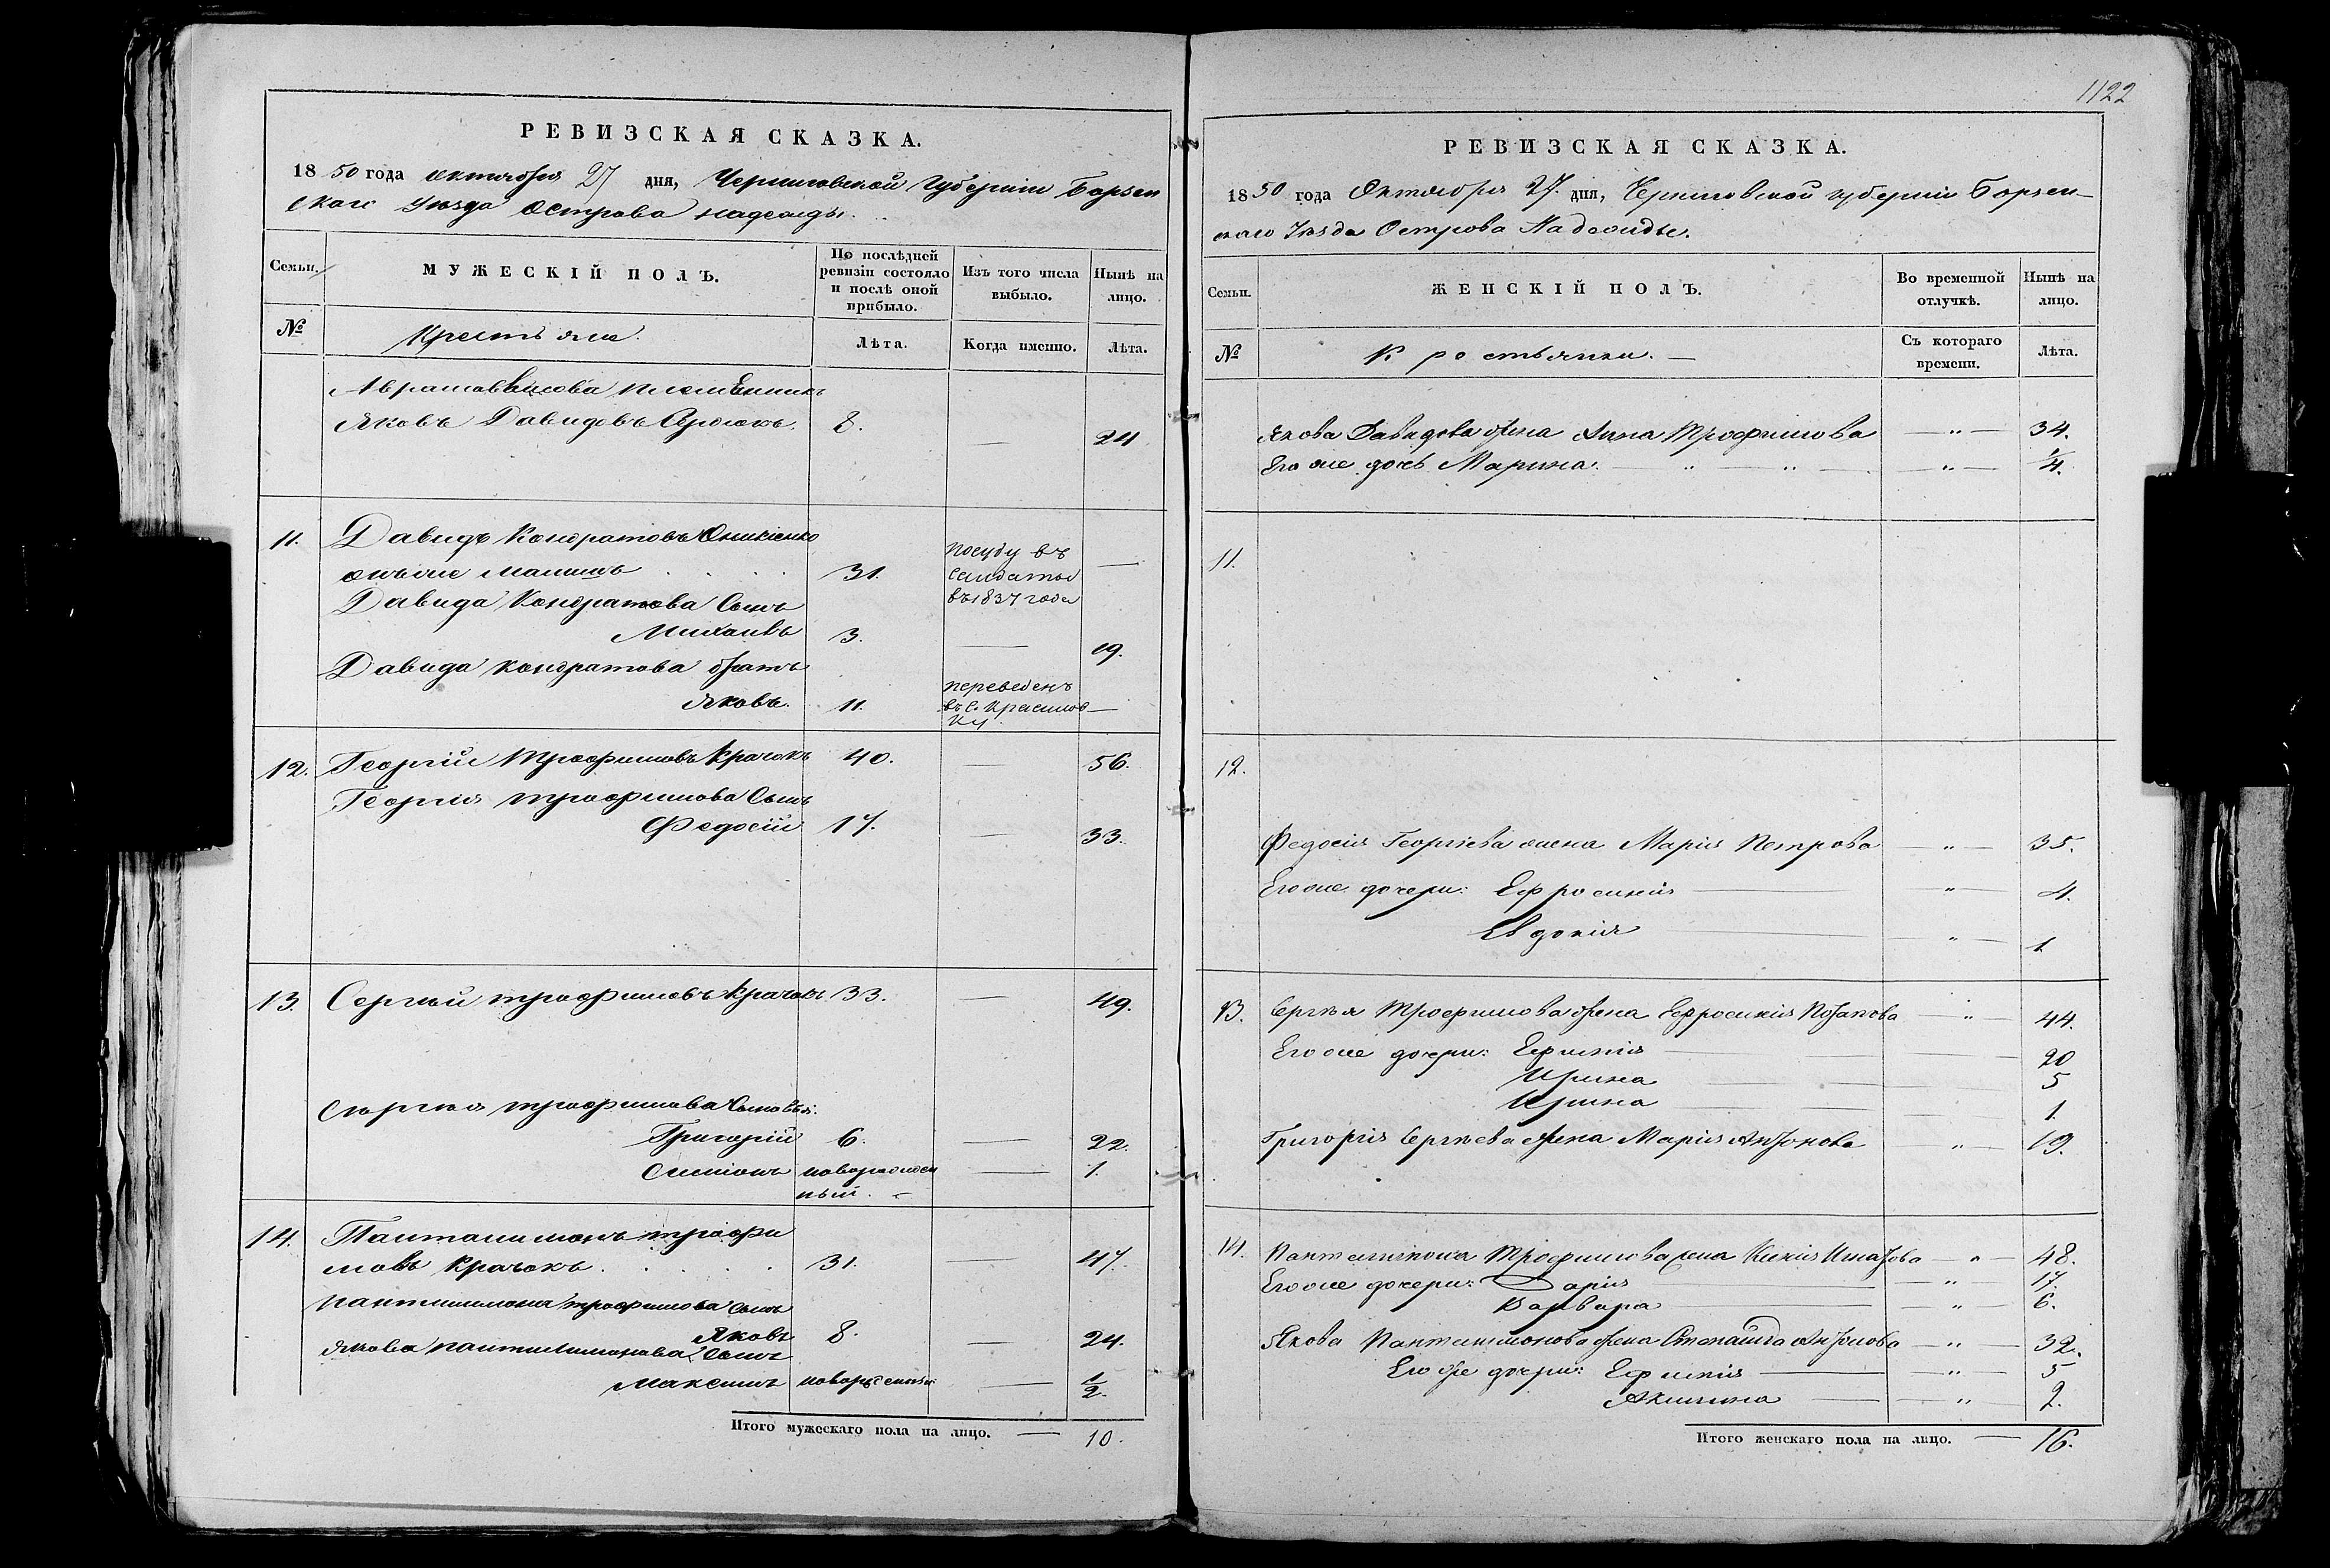 РЕВИЗСКАЯ СКАЗКА.
1850 года октября 27 дня, Черниговской Губерніи Борзен
скаго уѣзда Острова надежды.
Семьи. МУЖЕСКІЙ ПОЛЪ. По послѣдней ревизіи состояло и послѣ оной прибыло. Изъ того числа выбыло. Нынѣ на лицо.
№ Крестьяне. Лѣта. Когда именно. Лѣта.
племенникъ
Яковъ Давидовъ 8. — 24
11. Давидъ Кондратовъ Оникіенко
онъ же 31. —
въ
солдаты
въ 1837 года
Давида Кондратова Сынъ
Михаилъ 3. — 19.
Давида Кондратова братъ
Яковъ. 11. —
переведенъ
въ с. Красилов
ку.
12. Георгій Трофимовъ Крачокъ 40. — 56.
Георгія трофимова Сынъ
Федосій 17. — 33.
13. Сергѣй трофимовъ Крачокъ 33. — 49.
Сергѣя трофимова Сыновья:
Григорій 6. — 22.
Симіонъ новорожден — 1.
ный.
14. Пантилимонъ трофи
мовъ Крачокъ. 31. — 47.
пантилимона трофимова сынъ
Яковъ 8. — 24.
якова пантилимонова Сынъ
Максимъ новорожденый — 1/2
Итого мужескаго пола на лицо. — 10.
1122
РЕВИЗСКАЯ СКАЗКА.
1850 года Октября 27. дня, Черниговской губерніи Борзен-
скаго Уѣзда Острова Надежды.
Семьи. ЖЕНСКІЙ ПОЛЪ. Во временной отлучкѣ. Нынѣ на лицо.
№ Крестьянки. — Съ котораго времени. Лѣта.
Якова Давидова жена Анна Трофимова — " — 34.
Его же дочь Марина. — " — 1/4.
11.
12.
Федосія Георгіева жена Марія Петрова — " — 35.
Его же дочери: Ефросинія — " — 4.
Евдокія — " — 1
13. Сергѣя Трофимова жена Ефросинія — " — 44.
Его же дочери: Ефимія — 20
Ирина — 5
Ирина — 1.
Григорія Сергѣева жена Марія Антонова — " — 19.
14. Пантелимона Трофимова жена — " — 48.
Его же дочери: Дарія — " — 17.
Варвара — " — 6.
Якова Пантелимонова жена Степанида — " — 32.
Его же дочери: Ефимія — " — 5
Акилина — " — 2.
Итого женскаго пола на лицо. — 16.